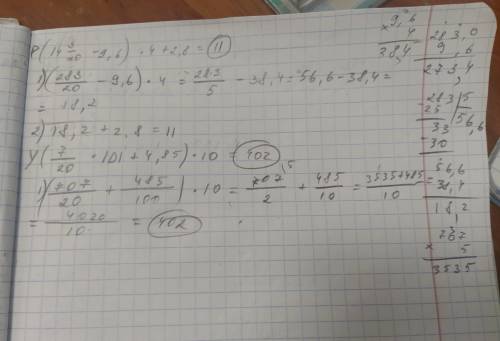 P(14 3/20 - 9,6) · 4 + 2,8 = 11
1) (283/20 - 9,6) · 4 = 283/5 - 38,4 = 56,6 - 38,4 =
= 18,2
2) 18,2 + 2,8 = 11
У(7/20 · 101 + 4,85) · 10 = 402
1) (707/20 + 485/100) · 10 = 707/2 + 485/10 = 3535+485/10
= 4020/10 = 402
9,6
× 4
38,4
283,0
9,6
273,4
283 | 5
25 | 56,6
33
30
56,6
38,4
18,2
707
× 5
3535